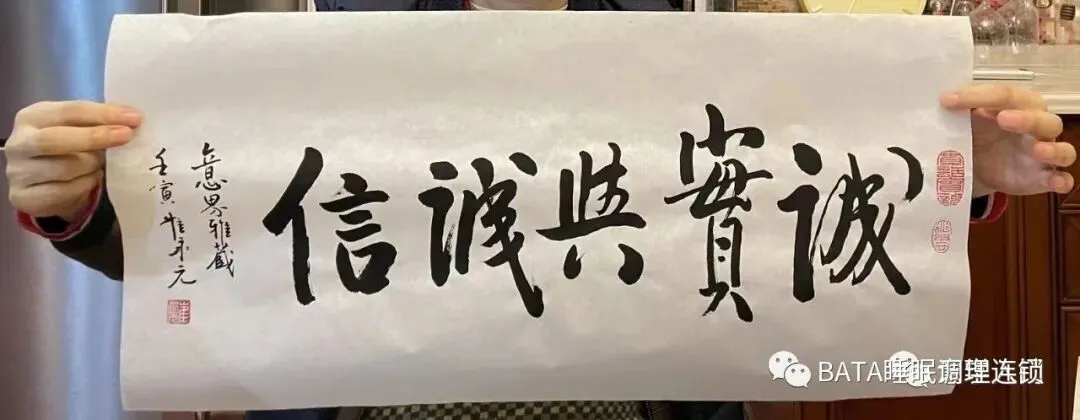 誠實與誠信
意界雅藏
壬寅 崔永元
BATA睡眠调理连锁